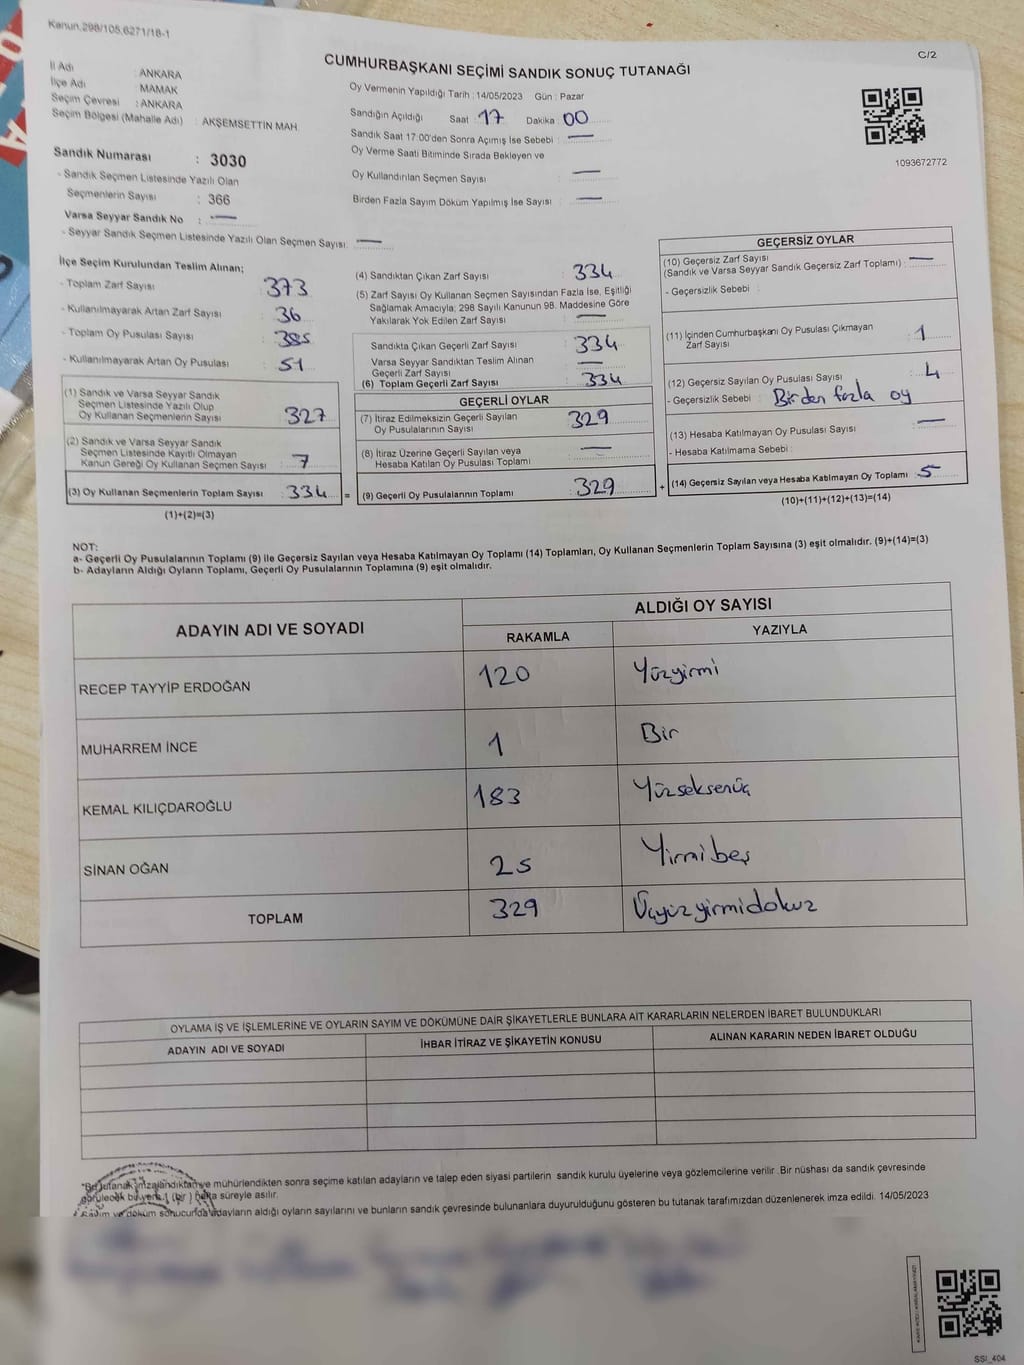 Kanun.298/105,6271/18-1
C/2
CUMHURBAŞKANI SEÇİMİ SANDIK SONUÇ TUTANAĞI
İl Adı : ANKARA
İlçe Adı : MAMAK
Seçim Çevresi : ANKARA
Seçim Bölgesi (Mahalle Adı) : AKŞEMSETTİN MAH
Sandık Numarası : 3030
- Sandık Seçmen Listesinde Yazılı Olan
Seçmenlerin Sayısı : 366
Varsa Seyyar Sandık No : —
- Seyyar Sandık Seçmen Listesinde Yazılı Olan Seçmen Sayısı: —
Oy Vermenin Yapıldığı Tarih : 14/05/2023 Gün : Pazar
Sandığın Açıldığı Saat : 17 Dakika : 00
Sandık Saat 17:00'den Sonra Açımış İse Sebebi : —
Oy Verme Saati Bitiminde Sırada Bekleyen ve
Oy Kullandırılan Seçmen Sayısı : —
Birden Fazla Sayım Döküm Yapılmış İse Sayısı : —
1093672772
İlçe Seçim Kurulundan Teslim Alınan;
- Toplam Zarf Sayısı : 373
- Kullanılmayarak Artan Zarf Sayısı : 36
- Toplam Oy Pusulası Sayısı : 385
- Kullanılmayarak Artan Oy Pusulası : 51
(1) Sandık ve Varsa Seyyar Sandık
Seçmen Listesinde Yazılı Olup
Oy Kullanan Seçmenlerin Sayısı : 327
(2) Sandık ve Varsa Seyyar Sandık
Seçmen Listesinde Kayıtlı Olmayan
Kanun Gereği Oy Kullanan Seçmen Sayısı : 7
(3) Oy Kullanan Seçmenlerin Toplam Sayısı : 334 =
(1)+(2)=(3)
(4) Sandıktan Çıkan Zarf Sayısı : 334
(5) Zarf Sayısı Oy Kullanan Seçmen Sayısından Fazla İse, Eşitliği
Sağlamak Amacıyla; 298 Sayılı Kanunun 98. Maddesine Göre
Yakılarak Yok Edilen Zarf Sayısı : —
Sandıkta Çıkan Geçerli Zarf Sayısı : 334
Varsa Seyyar Sandıktan Teslim Alınan
Geçerli Zarf Sayısı : —
(6) Toplam Geçerli Zarf Sayısı : 334
GEÇERLİ OYLAR
(7) İtiraz Edilmeksizin Geçerli Sayılan
Oy Pusulalarının Sayısı : 329
(8) İtiraz Üzerine Geçerli Sayılan veya
Hesaba Katılan Oy Pusulası Toplamı : —
(9) Geçerli Oy Pusulalarının Toplamı : 329 +
GEÇERSİZ OYLAR
(10) Geçersiz Zarf Sayısı
(Sandık ve Varsa Seyyar Sandık Geçersiz Zarf Toplamı) : —
- Geçersizlik Sebebi :
(11) İçinden Cumhurbaşkanı Oy Pusulası Çıkmayan
Zarf Sayısı : 1
(12) Geçersiz Sayılan Oy Pusulası Sayısı : 4
- Geçersizlik Sebebi : Birden fazla oy
(13) Hesaba Katılmayan Oy Pusulası Sayısı : —
- Hesaba Katılmama Sebebi :
(14) Geçersiz Sayılan veya Hesaba Katılmayan Oy Toplamı : 5
(10)+(11)+(12)+(13)=(14)
NOT:
a- Geçerli Oy Pusulalarının Toplamı (9) ile Geçersiz Sayılan veya Hesaba Katılmayan Oy Toplamı (14) Toplamları, Oy Kullanan Seçmenlerin Toplam Sayısına (3) eşit olmalıdır. (9)+(14)=(3)
b- Adayların Aldığı Oyların Toplamı, Geçerli Oy Pusulalarının Toplamına (9) eşit olmalıdır.
ADAYIN ADI VE SOYADI
ALDIĞI OY SAYISI
RAKAMLA YAZIYLA
RECEP TAYYİP ERDOĞAN 120 Yüzyirmi
MUHARREM İNCE 1 Bir
KEMAL KILIÇDAROĞLU 183 Yüzseksenüç
SİNAN OĞAN 25 Yirmibeş
TOPLAM 329 Üçyüzyirmidokuz
OYLAMA İŞ VE İŞLEMLERİNE VE OYLARIN SAYIM VE DÖKÜMÜNE DAİR ŞİKAYETLERLE BUNLARA AİT KARARLARIN NELERDEN İBARET BULUNDUKLARI
ADAYIN ADI VE SOYADI İHBAR İTİRAZ VE ŞİKAYETİN KONUSU ALINAN KARARIN NEDEN İBARET OLDUĞU
*Bu tutanak imzalandıktan ve mühürlendikten sonra seçime katılan adayların ve talep eden siyasi partilerin sandık kurulu üyelerine veya gözlemcilerine verilir .Bir nüshası da sandık çevresinde
görülecek bir yere 1 (bir ) hafta süreyle asılır.
Sayım ve döküm sonucunda adayların aldığı oyların sayılarını ve bunların sandık çevresinde bulunanlara duyurulduğunu gösteren bu tutanak tarafımızdan düzenlenerek imza edildi. 14/05/2023
SSİ_404